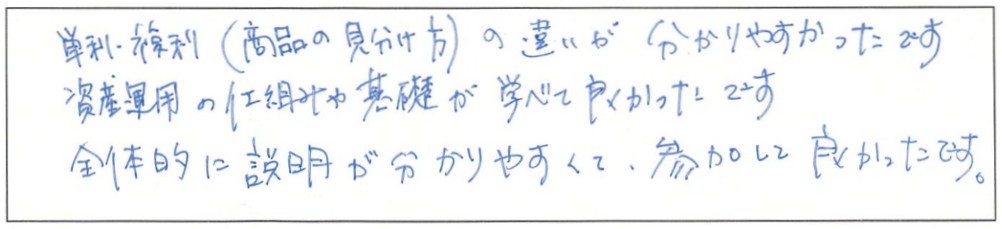 単利・複利（商品の見分け方）の違いが分かりやすかったです
資産運用の仕組みや基礎が学べて良かったです
全体的に説明が分かりやすくて、参加して良かったです。